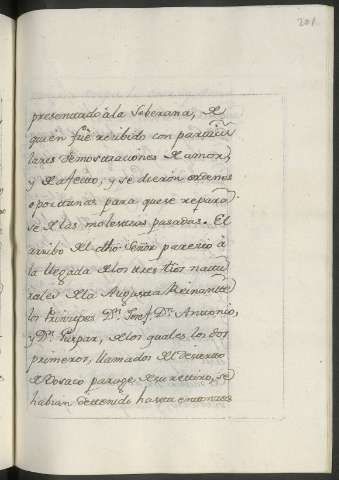 201.
presentado à la Soberana, de
quien fuè recibido con particu
lares demostraciones de amor,
y de afecto, y se dieron ordenes
oportunas para que se repara
se de las molestias pasadas. El
arribo del dho Señor parecio à
la llegada de los tres tios natu
rales de la Augusta Reinante
los Principes Dn. Josef, Dn. Antonio,
y Dn. Gaspar, de los quales los dos
primeros, llamados del desierto
de Bosaco parage de su retiro, se
habian detenido hasta entonces